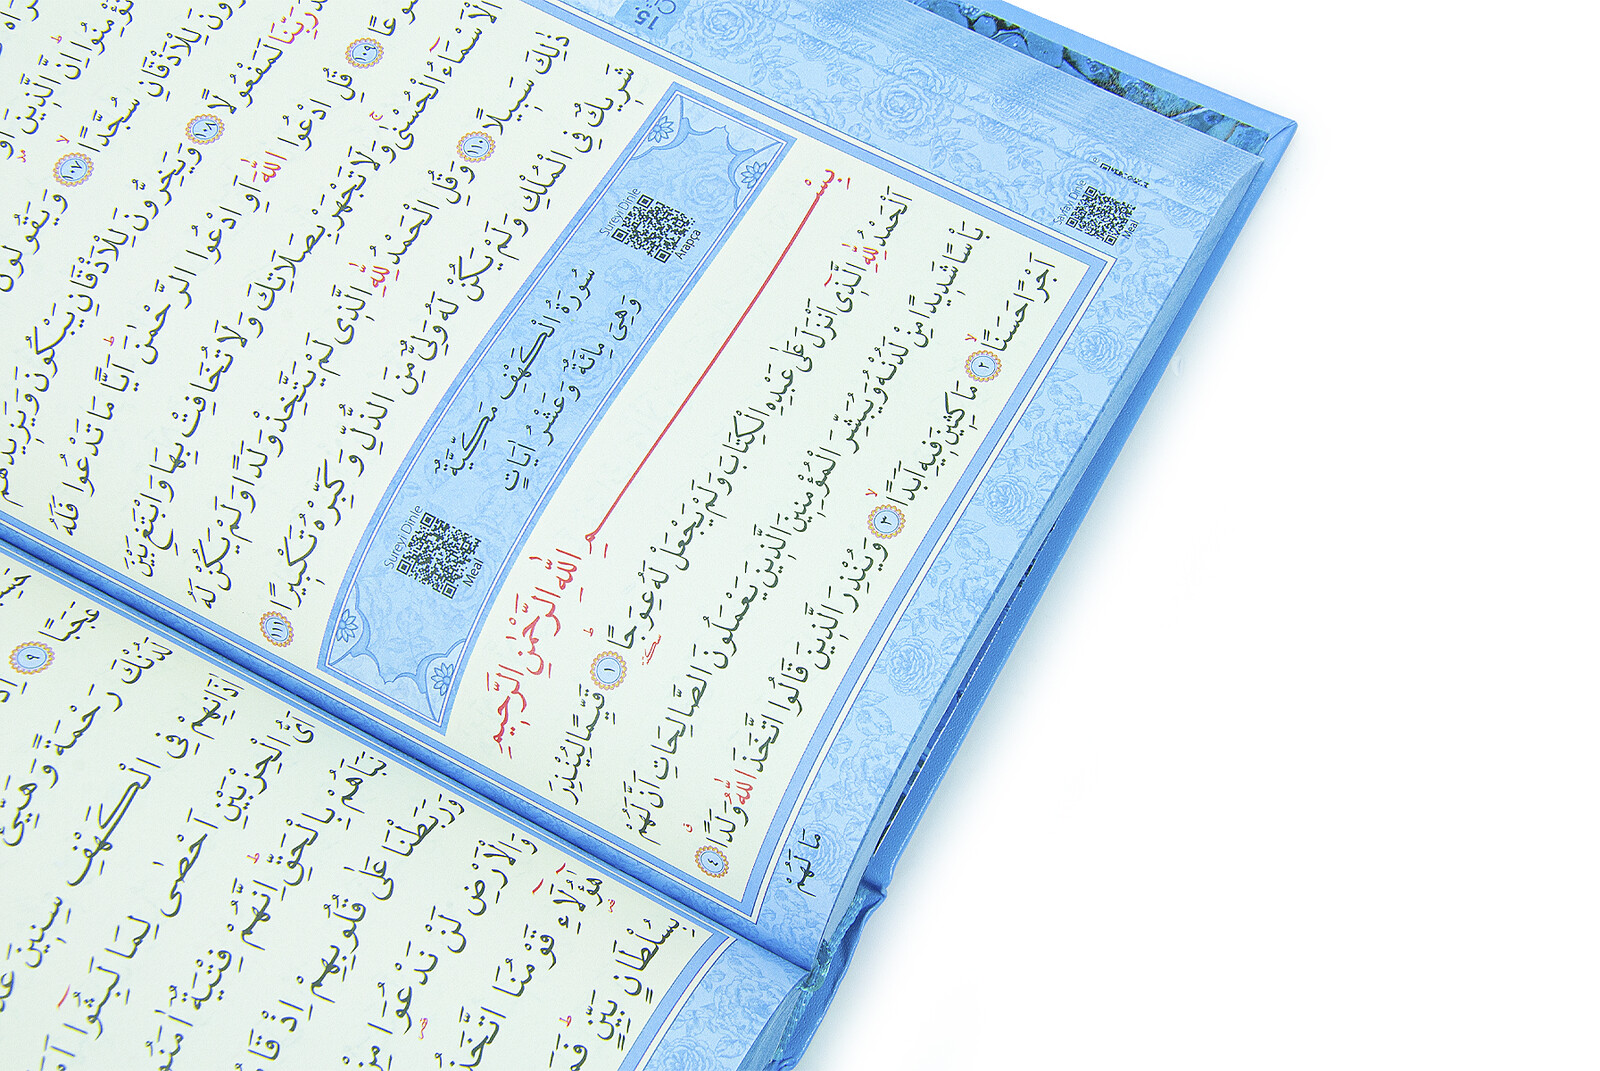 15
تُؤْمِنُوا اِنَّ الَّذِينَ
لِلْاَذْقَانِ سُجَّدًا ١٠٧ وَيَقُولُونَ
رَبِّنَا لَمَفْعُولًا ١٠٨ وَيَخِرُّونَ لِلْاَذْقَانِ يَبْكُونَ وَيَزِيدُهُمْ
١٠٩ قُلِ ادْعُوا اللّٰهَ اَوِ ادْعُوا الرَّحْمٰنَ اَيًّا مَا تَدْعُوا فَلَهُ
الْاَسْمَاءُ الْحُسْنٰى وَلَا تَجْهَرْ بِصَلَاتِكَ وَلَا تُخَافِتْ بِهَا وَابْتَغِ بَيْنَ
ذٰلِكَ سَبِيلًا ١١٠ وَقُلِ الْحَمْدُ لِلّٰهِ الَّذِى لَمْ يَتَّخِذْ وَلَدًا وَلَمْ يَكُنْ لَهُ
شَرِيكٌ فِى الْمُلْكِ وَلَمْ يَكُنْ لَهُ وَلِىٌّ مِنَ الذُّلِّ وَكَبِّرْهُ تَكْبِيرًا ١١١
Sureyi Dinle
Arapça
سُورَةُ الْكَهْفِ مَكِّيَّةٌ
وَهِىَ مِائَةٌ وَعَشْرُ اٰيَاتٍ
Sureyi Dinle
Meal
بِسْمِ اللّٰهِ الرَّحْمٰنِ الرَّحِيمِ
اَلْحَمْدُ لِلّٰهِ الَّذِى اَنْزَلَ عَلٰى عَبْدِهِ الْكِتَابَ وَلَمْ يَجْعَلْ لَهُ عِوَجًا ١ قَيِّمًا لِيُنْذِرَ
بَاْسًا شَدِيدًا مِنْ لَدُنْهُ وَيُبَشِّرَ الْمُؤْمِنِينَ الَّذِينَ يَعْمَلُونَ الصَّالِحَاتِ اَنَّ لَهُمْ
اَجْرًا حَسَنًا ٢ مَاكِثِينَ فِيهِ اَبَدًا ٣ وَيُنْذِرَ الَّذِينَ قَالُوا اتَّخَذَ اللّٰهُ وَلَدًا ٤
مَا لَهُمْ
Sayfayı Dinle
Meal
عَجَبًا ٩
لَدُنْكَ رَحْمَةً وَهَيِّئْ
اٰذَانِهِمْ فِى الْكَهْفِ سِنِينَ
اَىُّ الْحِزْبَيْنِ اَحْصٰى لِمَا لَبِثُوا
نَبَاَهُمْ بِالْحَقِّ اِنَّهُمْ فِتْيَةٌ اٰمَنُوا
وَرَبَطْنَا عَلٰى قُلُوبِهِمْ اِذْ
وَالْاَرْضِ لَنْ نَدْعُوَا مِنْ
هٰؤُلَاءِ قَوْمُنَا
بِسُلْطَانٍ بَيِّنٍ